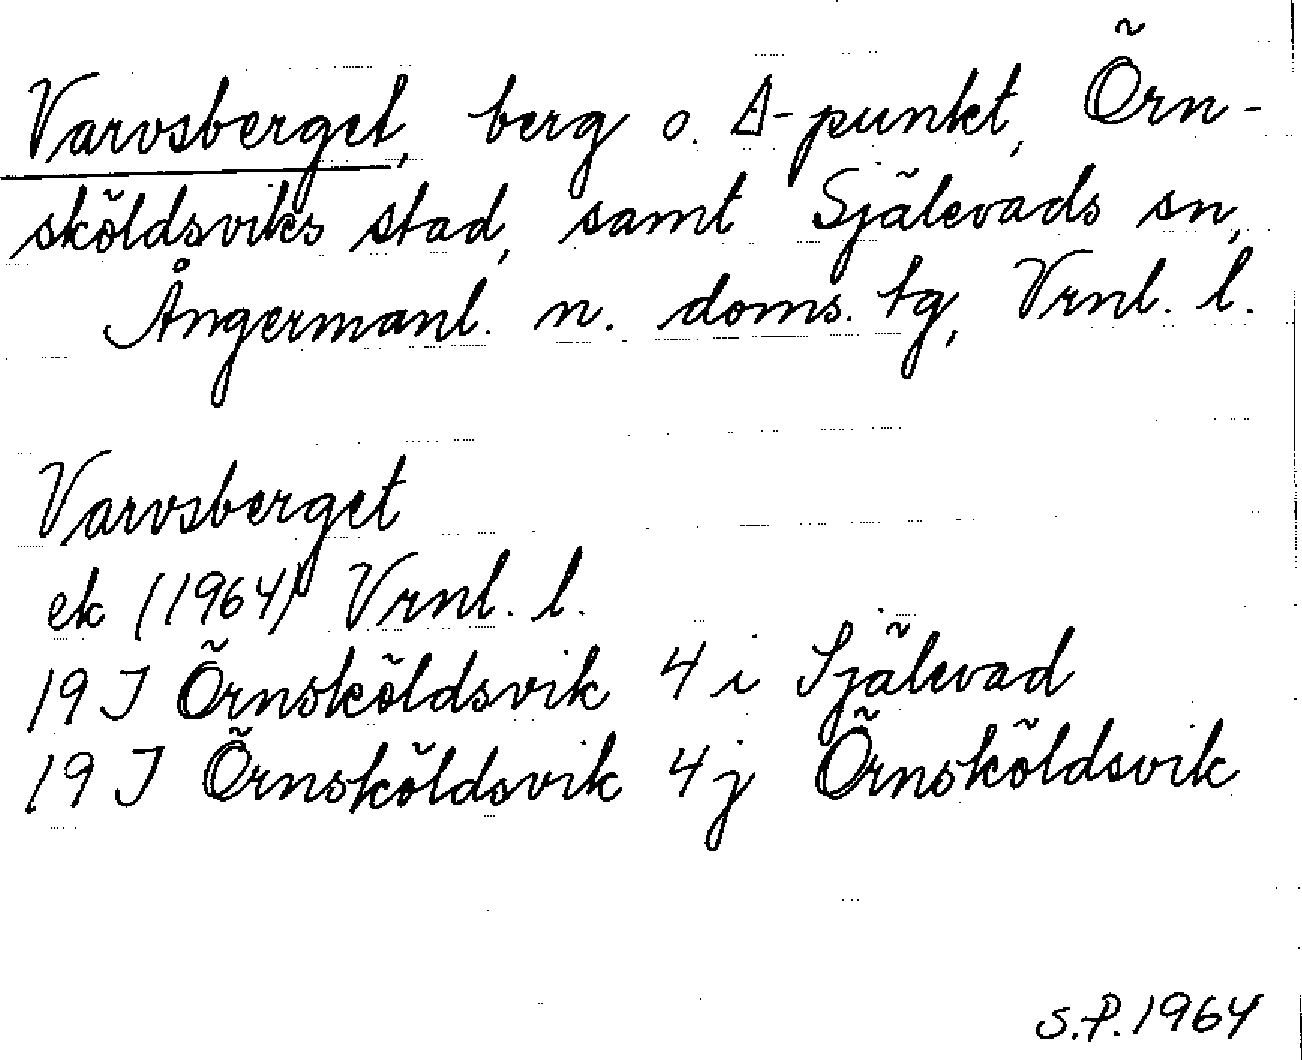 Varvsberget, berg o. Δ-punkt, Örn-
sköldsviks stad, samt Själevads sn,
Ångermanl. n. doms. tg, Vrnl. l.
Varvsberget
ek (1964) Vrnl. l.
19 J Örnsköldsvik 4 i Själevad
19 J Örnsköldsvik 4 j Örnsköldsvik
S.P. 1964